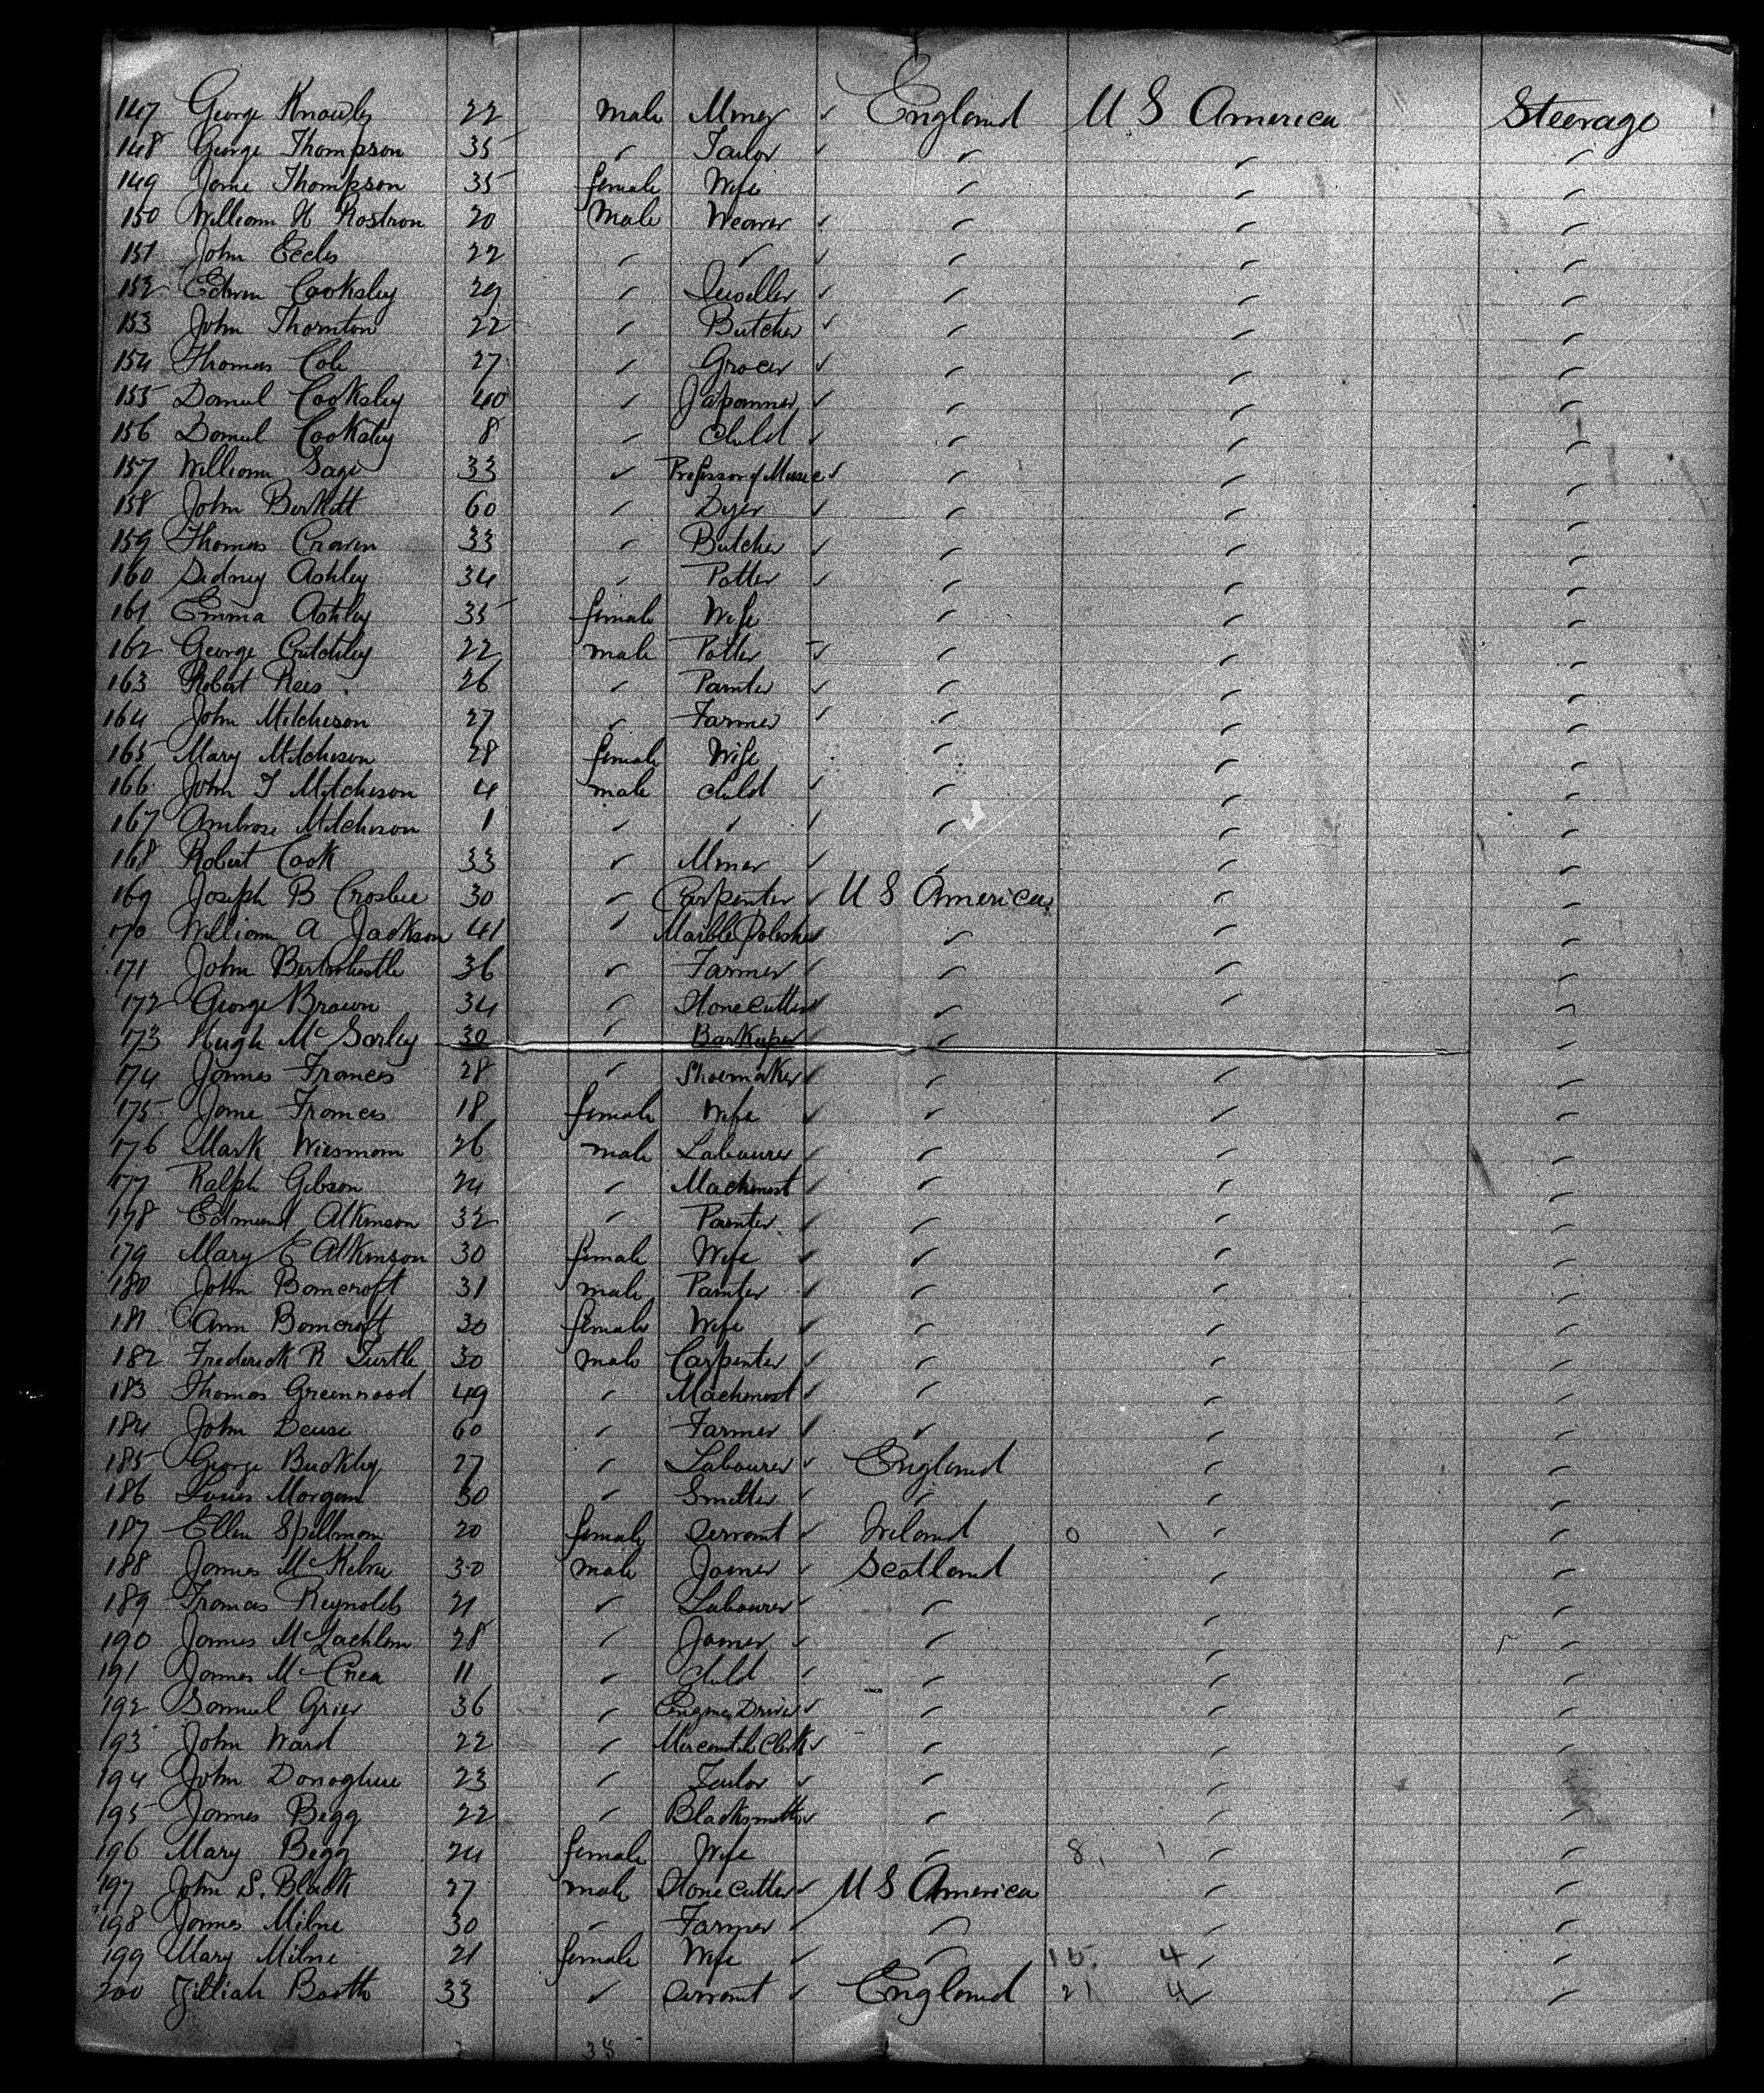 147 George Knowles 22 male Miner ✓ England U S America Steerage
148 George Thompson 35 ✓ Tailor ✓ ✓ ✓ ✓
149 Jane Thompson 35 female Wife ✓ ✓ ✓
150 William H Rostron 20 Male Weaver ✓ ✓ ✓ ✓
151 John Eccles 22 ✓ ✓ ✓ ✓ ✓ ✓
152 Edwin Cooksley 29 ✓ ✓ ✓ ✓ ✓
153 John Thornton 22 ✓ Butcher ✓ ✓ ✓ ✓
154 Thomas Cole 27 ✓ Grocer ✓ ✓ ✓ ✓
155 Daniel Cooksley 40 ✓ Japanner ✓ ✓ ✓ ✓
156 Daniel Cooksley 8 ✓ Child ✓ ✓ ✓ ✓
157 William Sage 33 ✓ Professor of Music ✓ ✓ ✓ ✓
158 John Birkitt 60 ✓ Dyer ✓ ✓ ✓ ✓
159 Thomas Craven 33 ✓ Butcher ✓ ✓ ✓ ✓
160 Sidney Ashley 34 ✓ Potter ✓ ✓ ✓ ✓
161 Emma Ashley 35 female Wife ✓ ✓ ✓
162 George Critchley 22 male Potter ✓ ✓ ✓ ✓
163 Robert Rees 26 ✓ Painter ✓ ✓ ✓ ✓
164 John Mitcheson 27 ✓ Farmer ✓ ✓ ✓ ✓
165 Mary Mitcheson 28 female Wife ✓ ✓ ✓
166 John T Mitcheson 4 male child ✓ ✓ ✓ ✓
167 Ambrose Mitcheson 1 ✓ ✓ ✓ ✓ ✓ ✓
168 Robert Cook 33 ✓ Miner ✓ ✓ ✓ ✓
169 Joseph B Crosbie 30 ✓ Carpenter ✓ U S America ✓ ✓
170 William A Jackson 41 ✓ Marble Polisher ✓ ✓ ✓ ✓
171 John Birtwhistle 36 ✓ Farmer ✓ ✓ ✓ ✓
172 George Brown 34 ✓ Stonecutter ✓ ✓ ✓ ✓
173 Hugh McSorley 30 ✓ Barkeeper ✓ ✓ ✓
174 James Frances 28 ✓ Shoemaker ✓ ✓ ✓ ✓
175 Jane Frances 18 female Wife ✓ ✓ ✓ ✓
176 Mark Wiesman 26 male Labourer ✓ ✓ ✓ ✓
177 Ralph Gibson 24 ✓ Machinist ✓ ✓ ✓ ✓
178 Edmund Atkinson 32 ✓ Painter ✓ ✓ ✓ ✓
179 Mary E Atkinson 30 female Wife ✓ ✓ ✓ ✓
180 John Bancroft 31 male Painter ✓ ✓ ✓ ✓
181 Ann Bancroft 30 female Wife ✓ ✓ ✓ ✓
182 Frederick R Turtle 30 male Carpenter ✓ ✓ ✓ ✓
183 Thomas Greenwood 49 ✓ Machinist ✓ ✓ ✓ ✓
184 John Deuse 60 ✓ Farmer ✓ ✓ ✓ ✓
185 George Buckley 27 ✓ Labourer ✓ England ✓ ✓
186 Louis Morgan 30 ✓ Smelter ✓ ✓ ✓ ✓
187 Ellen Spillman 20 female Servant ✓ Ireland 0 1 ✓ ✓
188 James McKelvie 30 male Joiner ✓ Scotland ✓ ✓
189 Frances Reynolds 21 ✓ Labourer ✓ ✓ ✓ ✓
190 James McLachlan 28 ✓ Joiner ✓ ✓ ✓ ✓
191 James McCrea 11 ✓ Child ✓ ✓ ✓ ✓
192 Samuel Grier 36 ✓ Engine Driver ✓ ✓ ✓ ✓
193 John Ward 22 ✓ Mercantile Clerk ✓ ✓ ✓ ✓
194 John Donoghue 23 ✓ Tailor ✓ ✓ ✓ ✓
195 James Begg 22 ✓ Blacksmith ✓ ✓ ✓ ✓
196 Mary Begg 24 female Wife ✓ 8 1 ✓ ✓
197 John S. Black 27 male Stonecutter ✓ U S America ✓ ✓
198 James Milne 30 ✓ Farmer ✓ ✓ ✓ ✓
199 Mary Milne 21 female Wife ✓ ✓ 15. 4 ✓ ✓
200 Booth 33 ✓ Servant ✓ England 21 4 ✓ ✓
38